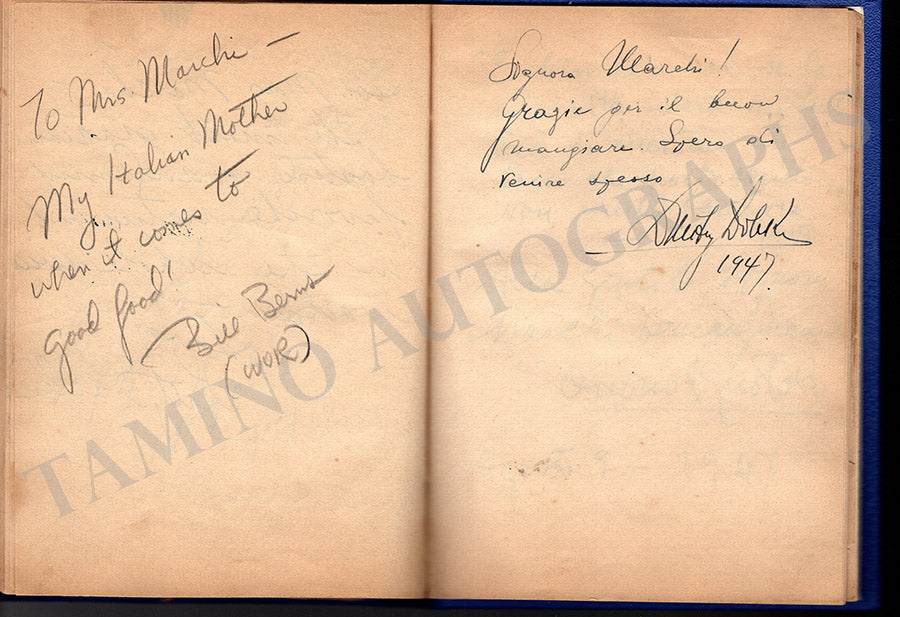 To Mrs. Marchi —
My Italian Mother
when it comes to
good food!
Bill Berns
(WOR)
Signora Marchi!
Grazie per il buon
mangiare. Spero di
venire spesso
1947
TAMINO AUTOGRAPHS